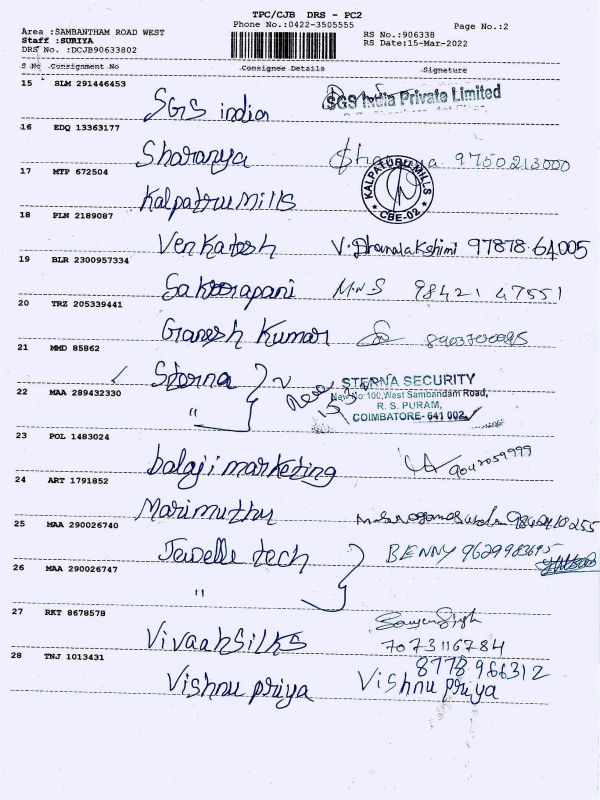 TPC/CJB DRS - PC2
Phone No.:0422-3505555
Page No.:2
Area :SAMBANTHAM ROAD WEST
Staff :SURIYA
DRS No. :DCJB90633802
RS No.:906338
RS Date:15-Mar-2022
S No Consignment No Consignee Details Signature
15 SLM 291446453
SGS indian
SGS India Private Limited
16 EDQ 13363177
Sharanya 9750213000
17 MTP 672504
Kalpatru mills
KALPATURU MILLS
CBE-02
18 PLN 2189087
Venkatesh V. Dhanalakshimi 97878 64005
19 BLR 2300957334
Sakorapani M.N S 98421 47551
20 TRZ 205339441
Ganesh Kumar
21 MMD 85862
Sterna
STERNA SECURITY
New No:100,West Sambandam Road,
R. S. PURAM,
COIMBATORE- 641 002
22 MAA 289432330
"
23 POL 1483024
balaji marketing
24 ART 1791852
Marimuthu
25 MAA 290026740
Jewelle tech BENNY
26 MAA 290026747
"
27 RKT 8678578
Vivaah Silks
7073116784
28 TNJ 1013431
8778 966312
Vishnu priya Vishnu priya